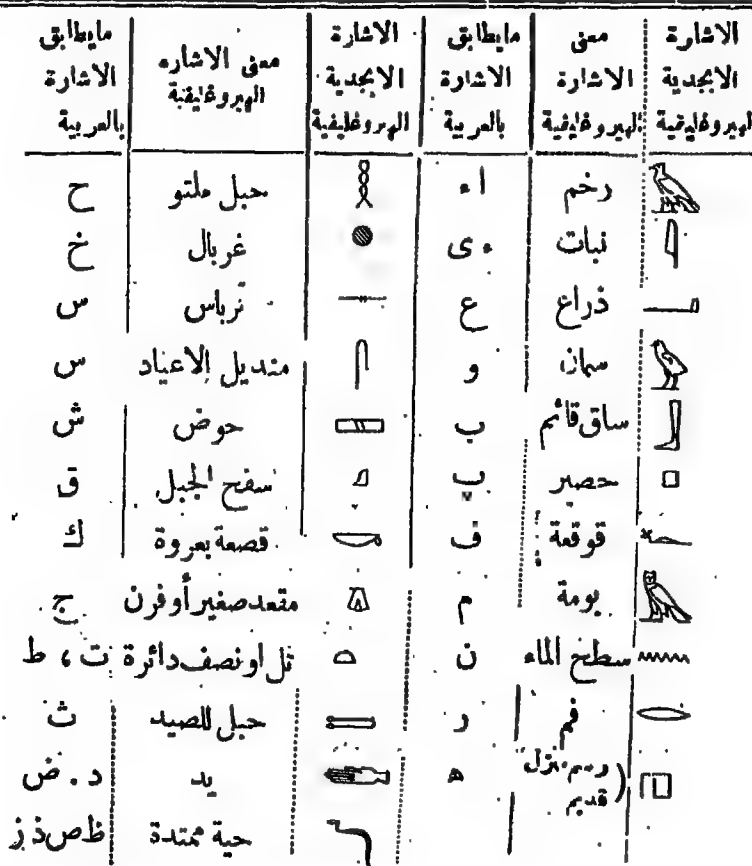 الاشارة الابجدية الهيروغليفية | معنى الاشارة الهيروغليفية | مايطابق الاشارة بالعربية | الاشارة الابجدية الهيروغليفية | معنى الاشاره الهيروغليفية | مايطابق الاشارة بالعربية
رخم | اء | حبل ملتو | ح
نبات | ءى | غربال | خ
ذراع | ع | ترباس | س
سمان | و | منديل الاعياد | س
ساق قائم | ب | حوض | ش
حصير | پ | سفح الجبل | ق
قوقعة | ف | قصعة بعروة | ك
بومة | م | مقعد صغير أو فرن | ج
سطح الماء | ن | تل او نصف دائرة | ت ، ط
فم | ر | حبل للصيد | ث
رسم منزل قديم | ه | يد | د . ض
حية ممتدة | ظ ص ذ ز